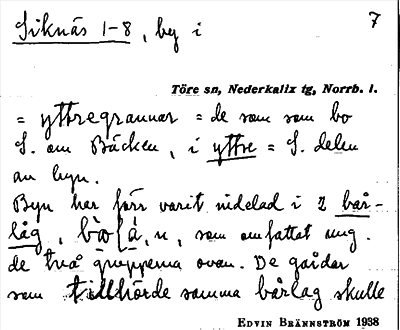 Siknäs 1-8, by i
7
Töre sn, Nederkalix tg, Norrb. l.
= yttregrannar = de som som bo
S. om Bäcken, i yttre = S. delen
av byn.
Byn har förr varit indelad i 2 bår-
låg, n, som omfattat ung.
de två grupperna ovan. De gårdar
som tillhörde samma bårlag skulle
EDVIN BRÄNNSTRÖM 1938